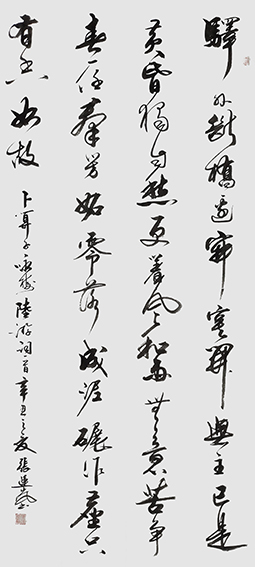 驛外斷橋邊寂寞開無主已是
黃昏獨自愁更著風和雨無意苦爭
春一任羣芳妒零落成泥碾作塵只
有香如故
卜算子詠梅陸游詞一首辛丑之夏張